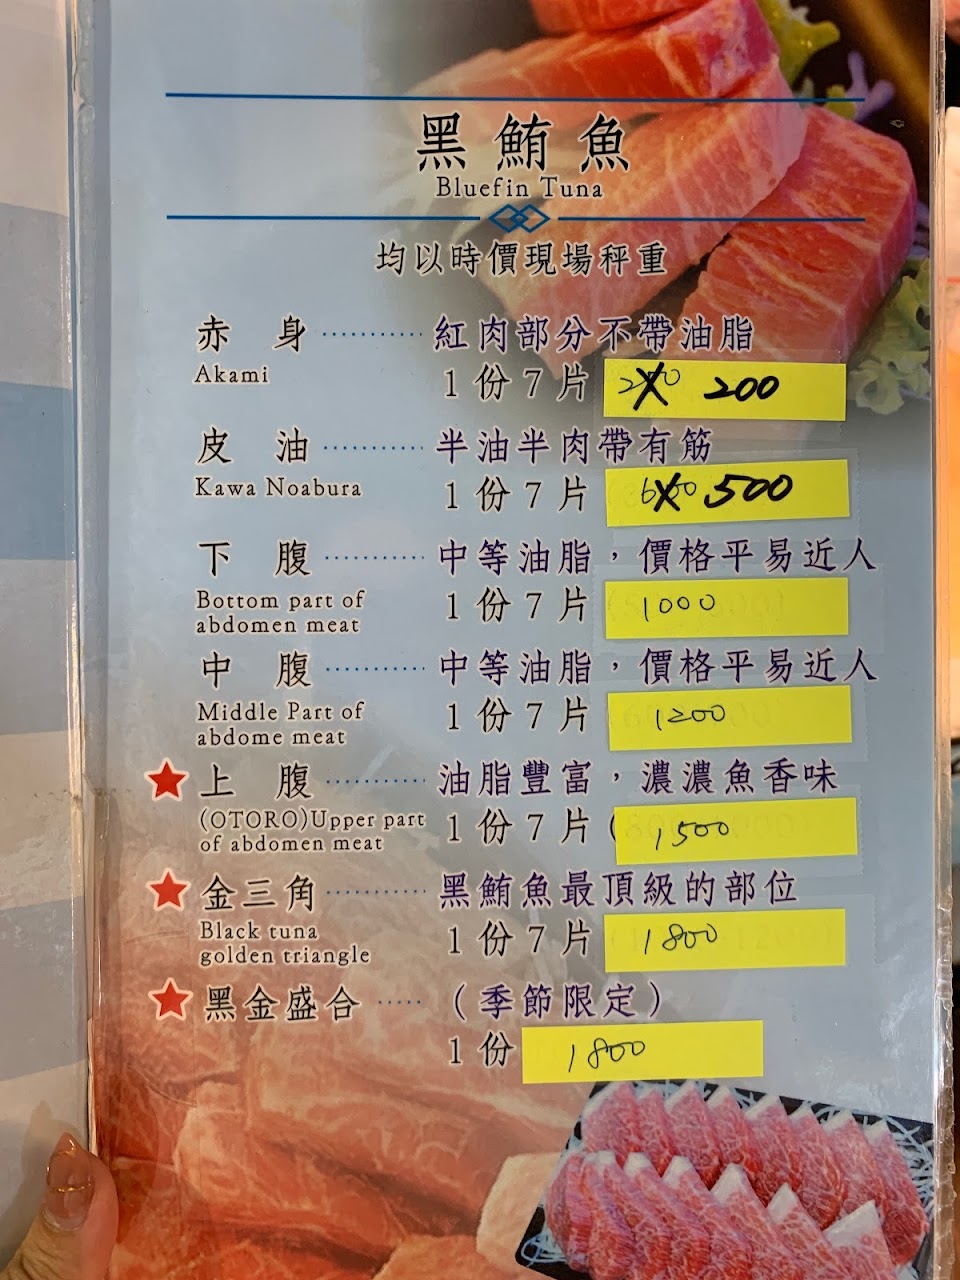 黑鮪魚
Bluefin Tuna
均以時價現場秤重
赤 身 ·········· 紅肉部分不帶油脂
Akami 1份7片 200
皮 油 ·········· 半油半肉帶有筋
Kawa Noabura 1份7片 500
下 腹 ·········· 中等油脂，價格平易近人
Bottom part of 1份7片 1000
abdomen meat
中 腹 ·········· 中等油脂，價格平易近人
Middle Part of 1份7片 1200
abdome meat
★上 腹 ·········· 油脂豐富，濃濃魚香味
(OTORO)Upper part 1份7片( 1500
of abdomen meat
★金三角 ·········· 黑鮪魚最頂級的部位
Black tuna 1份7片 1800
golden triangle
★黑金盛合 ····· （季節限定）
1份 1800